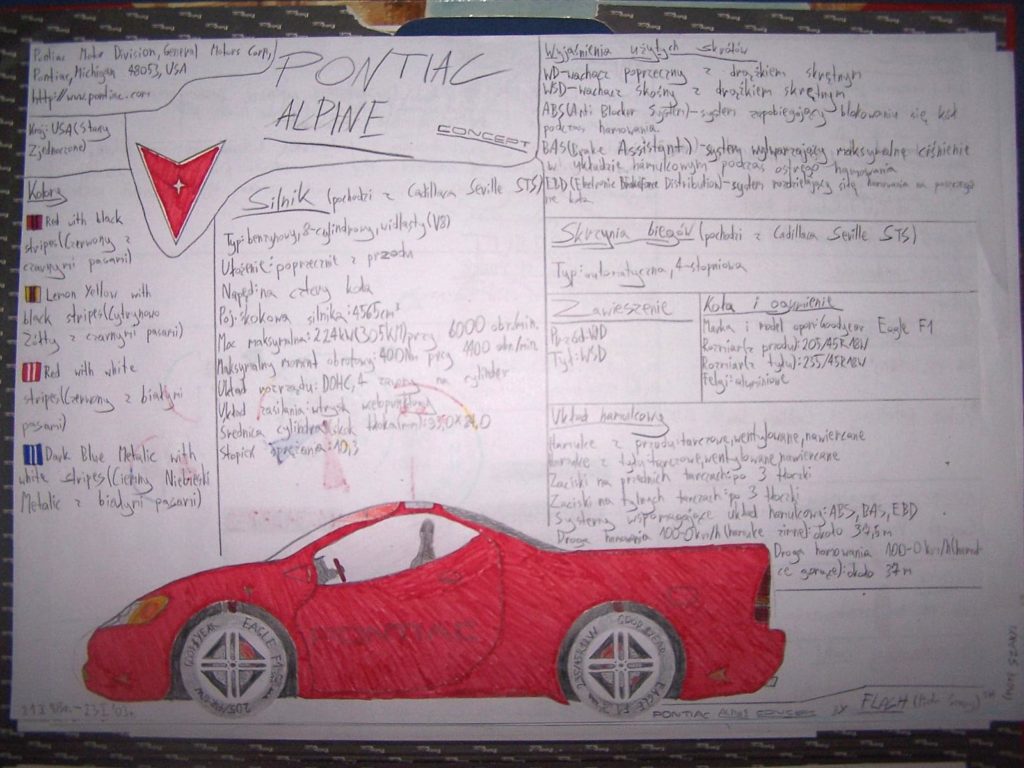 Pontiac Motor Division, General Motors Corp,
Pontiac, Michigan 48053, USA
http://www.pontiac.com
Kraj: USA (Stany
Zjednoczone)
PONTIAC
ALPINE
CONCEPT
Kolory
Red with black
stripes (Czerwony z
czarnymi pasami)
Lemon Yellow with
black stripes (Cytrynowo
Żółty z czarnymi pasami)
Red with white
stripes (Czerwony z białymi
pasami)
Dark Blue Metalic with
white stripes (Ciemny Niebieski
Metalic z białymi pasami)
Silnik (pochodzi z Cadillaca Seville STS)
Typ: benzynowy, 8-cylindrowy, widlasty (V8)
Ułożenie: poprzecznie z przodu
Napęd: na cztery koła
Poj. skokowa silnika: 4565 cm³
Moc maksymalna: 224 kW (305 KM) przy 6000 obr./min.
Maksymalny moment obrotowy: 400 Nm przy 4400 obr./min.
Układ rozrządu: DOHC, 4 zawory na cylinder
Układ zasilania: wtrysk
Średnica cylindra skok tłoka (mm):
Stopień sprężania: 10,3
Wyjaśnienia użytych skrótów
WD-wahacz poprzeczny z drążkiem skrętnym
WSD-wahacz skośny z drążkiem skrętnym
ABS (Anti Blocker System)-system zapobiegający blokowaniu się kół
podczas hamowania
BAS (Brake Assistant)-system wytwarzający maksymalne ciśnienie
w układzie hamulcowym podczas ostrego hamowania
EBD (Eletronic Distribution)-system rozdzielający siłę hamowania na
ne koła
Skrzynia biegów (pochodzi z Cadillaca Seville STS)
Typ: automatyczna, 4-stopniowa
Zawieszenie
Przód: WD
Tył: WSD
Koła i ogumienie
Marka i model opon: Goodyear Eagle F1
Rozmiar (z przodu): 205/45R18W
Rozmiar (z tyłu): 255/45R18W
Felgi: aluminiowe
Układ hamulcowy
Hamulce z przodu: tarczowe, wentylowane, nawiercane
Hamulce z tyłu: tarczowe, wentylowane, nawiercane
Zaciski na przednich tarczach: po 3 tłoczki
Zaciski na tylnych tarczach: po 3 tłoczki
Systemy wspomagające układ hamulcowy: ABS, BAS, EBD
Droga hamowania 100-0 km/h (hamulce zimne): około 37,5 m
Droga hamowania 100-0 km/h (hamul-
ce gorące): około 37 m
PONTIAC
GOODYEAR EAGLE F1
GOODYEAR
EAGLE F1
PONTIAC ALPINE CONCEPT BY FLASH